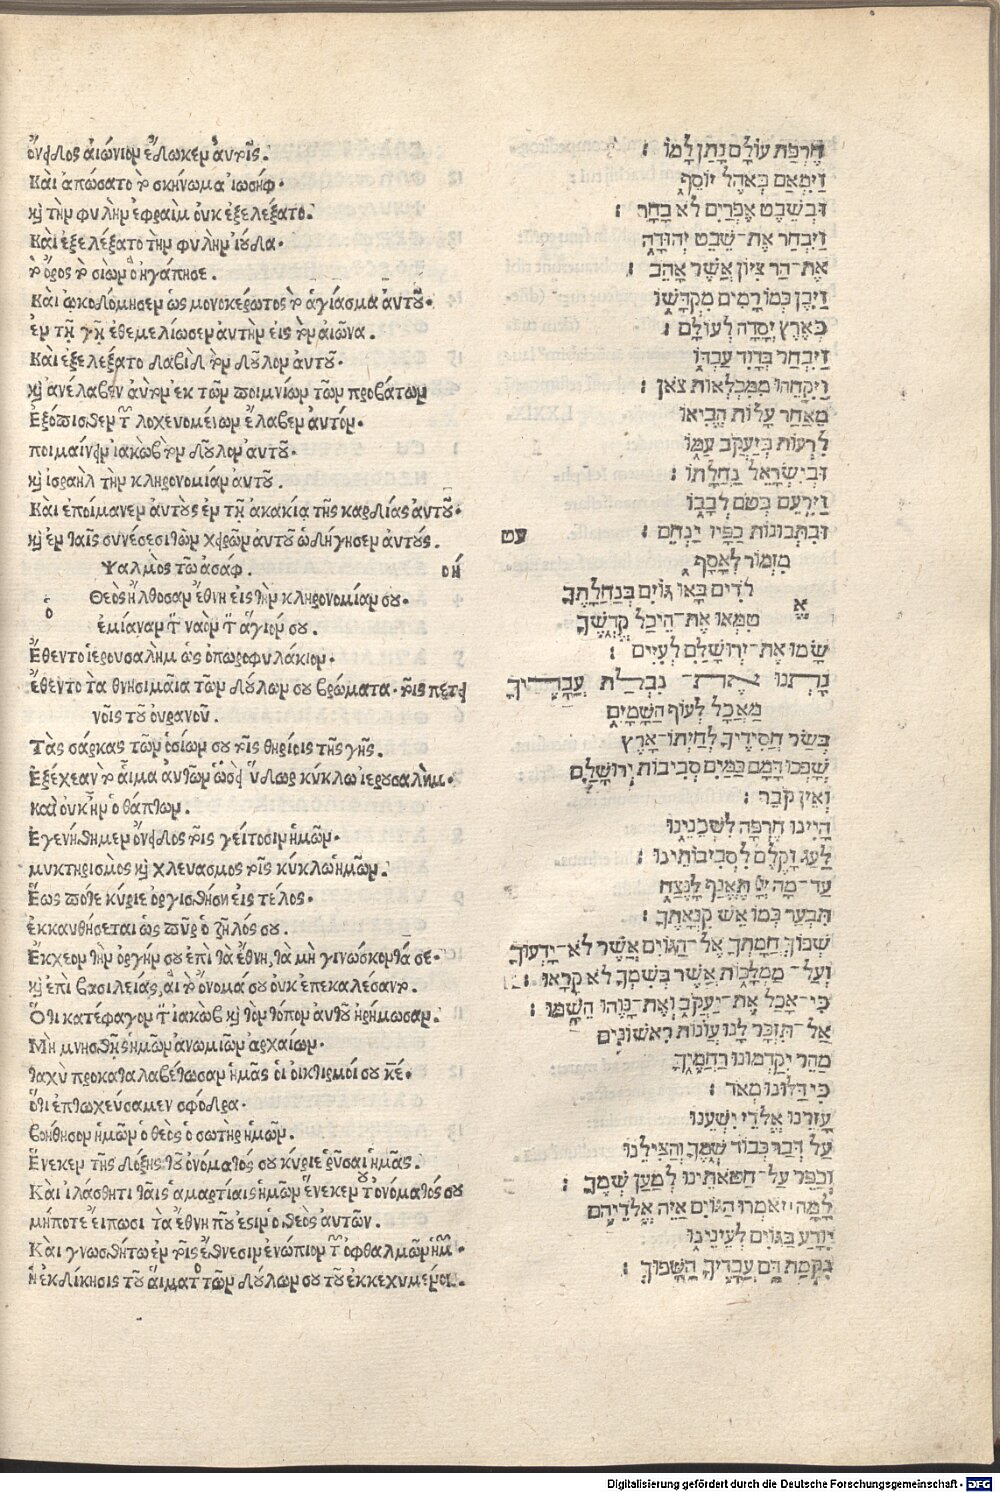 ὄνειδος αἰώνιον ἔδωκεν αὐτοῖς.
Καὶ ἀπώσατο τὸ σκήνωμα ἰωσήφ.
καὶ τὴν φυλὴν ἐφραὶμ οὐκ ἐξελέξατο.
Καὶ ἐξελέξατο τὴν φυλὴν ἰούδα.
τὸ ὄρος τὸ σιὼν ὃ ἠγάπησε.
Καὶ ὠκοδόμησεν ὡς μονοκέρωτος τὸ ἁγίασμα αὐτοῦ.
ἐν τῇ γῇ ἐθεμελίωσεν αὐτὴν εἰς τὸν αἰῶνα.
Καὶ ἐξελέξατο δαβὶδ τὸν δοῦλον αὐτοῦ.
καὶ ἀνέλαβεν αὐτὸν ἐκ τῶν ποιμνίων τῶν προβάτων
Ἐξόπισθεν τῶν λοχευομένων ἔλαβεν αὐτόν.
ποιμαίνειν ἰακὼβ τὸν δοῦλον αὐτοῦ.
καὶ ἰσραὴλ τὴν κληρονομίαν αὐτοῦ.
Καὶ ἐποίμανεν αὐτοὺς ἐν τῇ ἀκακίᾳ τῆς καρδίας αὐτοῦ.
καὶ ἐν ταῖς συνέσεσι τῶν χειρῶν αὐτοῦ ὡδήγησεν αὐτούς.
Ψαλμὸς τῷ ἀσάφ. οή
Ὁ Θεὸς ἤλθοσαν ἔθνη εἰς τὴν κληρονομίαν σου.
ἐμίαναν τὸν ναὸν τὸν ἅγιόν σου.
Ἔθεντο ἱερουσαλὴμ ὡς ὀπωροφυλάκιον.
ἔθεντο τὰ θνησιμαῖα τῶν δούλων σου βρώματα τοῖς πετει
νοῖς τοῦ οὐρανοῦ.
Τὰς σάρκας τῶν ὁσίων σου τοῖς θηρίοις τῆς γῆς.
Ἐξέχεαν τὸ αἷμα αὐτῶν ὡσεὶ ὕδωρ κύκλῳ ἱερουσαλήμ.
καὶ οὐκ ἦν ὁ θάπτων.
Ἐγενήθημεν ὄνειδος τοῖς γείτοσιν ἡμῶν.
μυκτηρισμὸς καὶ χλευασμὸς τοῖς κύκλῳ ἡμῶν.
Ἕως πότε κύριε ὀργισθήσῃ εἰς τέλος.
ἐκκαυθήσεται ὡς πῦρ ὁ ζῆλός σου.
Ἔκχεον τὴν ὀργήν σου ἐπὶ τὰ ἔθνη, τὰ μὴ γινώσκοντά σε.
καὶ ἐπὶ βασιλείας, αἳ τὸ ὄνομά σου οὐκ ἐπεκαλέσαντο.
Ὅτι κατέφαγον τὸν ἰακὼβ καὶ τὸν τόπον αὐτοῦ ἠρήμωσαν.
Μὴ μνησθῇς ἡμῶν ἀνομιῶν ἀρχαίων.
ταχὺ προκαταλαβέτωσαν ἡμᾶς οἱ οἰκτιρμοί σου κε.
ὅτι ἐπτωχεύσαμεν σφόδρα.
βοήθησον ἡμῶν ὁ θεὸς ὁ σωτὴρ ἡμῶν.
Ἕνεκεν τῆς δόξης τοῦ ὀνόματός σου κύριε ῥῦσαι ἡμᾶς.
Καὶ ἱλάσθητι ταῖς ἁμαρτίαις ἡμῶν ἕνεκεν τοῦ ὀνόματός σου
μήποτε εἴπωσι τὰ ἔθνη ποῦ ἐσιν ὁ θεὸς αὐτῶν.
Καὶ γνωσθήτω ἐν τοῖς ἔθνεσιν ἐνώπιον τῶν ὀφθαλμῶν ἡμῶν.
ἡ ἐκδίκησις τοῦ αἵματος τῶν δούλων σου τοῦ ἐκκεχυμένου.
חֶרְפַּת עוֹלָם נָתַן לָמוֹ :
וַיִּמְאַס בְּאֹהֶל יוֹסֵף
וּבְשֵׁבֶט אֶפְרַיִם לֹא בָחָר :
וַיִּבְחַר אֶת־שֵׁבֶט יְהוּדָה
אֶת־הַר צִיּוֹן אֲשֶׁר אָהֵב :
וַיִּבֶן כְּמוֹ רָמִים מִקְדָּשׁוֹ
כְּאֶרֶץ יְסָדָהּ לְעוֹלָם :
וַיִּבְחַר בְּדָוִד עַבְדּוֹ
וַיִּקָּחֵהוּ מִמִּכְלְאוֹת צֹאן :
מֵאַחַר עָלוֹת הֱבִיאוֹ
לִרְעוֹת בְּיַעֲקֹב עַמּוֹ
וּבְיִשְׂרָאֵל נַחֲלָתוֹ :
וַיִּרְעֵם כְּתֹם לְבָבוֹ
וּבִתְבוּנוֹת כַּפָּיו יַנְחֵם : עט
מִזְמוֹר לְאָסָף
אֱלֹדִים בָּאוּ גוֹיִם בְּנַחֲלָתֶךָ
טִמְּאוּ אֶת־הֵיכַל קָדְשֶׁךָ
שָׂמוּ אֶת־יְרוּשָׁלַיִם לְעִיִּים :
נָתְנוּ אֶת־נִבְלַת עֲבָדֶיךָ
מַאֲכָל לְעוֹף הַשָּׁמָיִם
בְּשַׂר חֲסִידֶיךָ לְחַיְתוֹ־אָרֶץ
שָׁפְכוּ דָמָם כַּמַּיִם סְבִיבוֹת יְרוּשָׁלָ‍ִם
וְאֵין קוֹבֵר :
הָיִינוּ חֶרְפָּה לִשְׁכֵנֵינוּ
לַעַג וָקֶלֶס לִסְבִיבוֹתֵינוּ :
עַד־מָה יְיָ תֶּאֱנַף לָנֶצַח
תִּבְעַר כְּמוֹ אֵשׁ קִנְאָתֶךָ :
שְׁפוֹךְ חֲמָתְךָ אֶל־הַגּוֹיִם אֲשֶׁר לֹא־יְדָעוּךָ
וְעַל־מַמְלָכוֹת אֲשֶׁר בְּשִׁמְךָ לֹא קָרָאוּ :
כִּי־אָכַל אֶת־יַעֲקֹב וְאֶת־נָוֵהוּ הֵשַׁמּוּ :
אַל־תִּזְכָּר לָנוּ עֲוֹנוֹת רִאשׁוֹנִים
מַהֵר יְקַדְּמוּנוּ רַחֲמֶיךָ
כִּי דַלּוֹנוּ מְאֹד :
עָזְרֵנוּ אֱלֹדֵי יִשְׁעֵנוּ
עַל דְּבַר כְּבוֹד שְׁמֶךָ וְהַצִּילֵנוּ
וְכַפֵּר עַל־חַטֹּאתֵינוּ לְמַעַן שְׁמֶךָ :
לָמָּה יֹאמְרוּ הַגּוֹיִם אַיֵּה אֱלֹדֵיהֶם
יִוָּדַע בַּגּוֹיִם לְעֵינֵינוּ
נִקְמַת דַּם עֲבָדֶיךָ הַשָּׁפוּךְ :
Digitalisierung gefördert durch die Deutsche Forschungsgemeinschaft - DFG